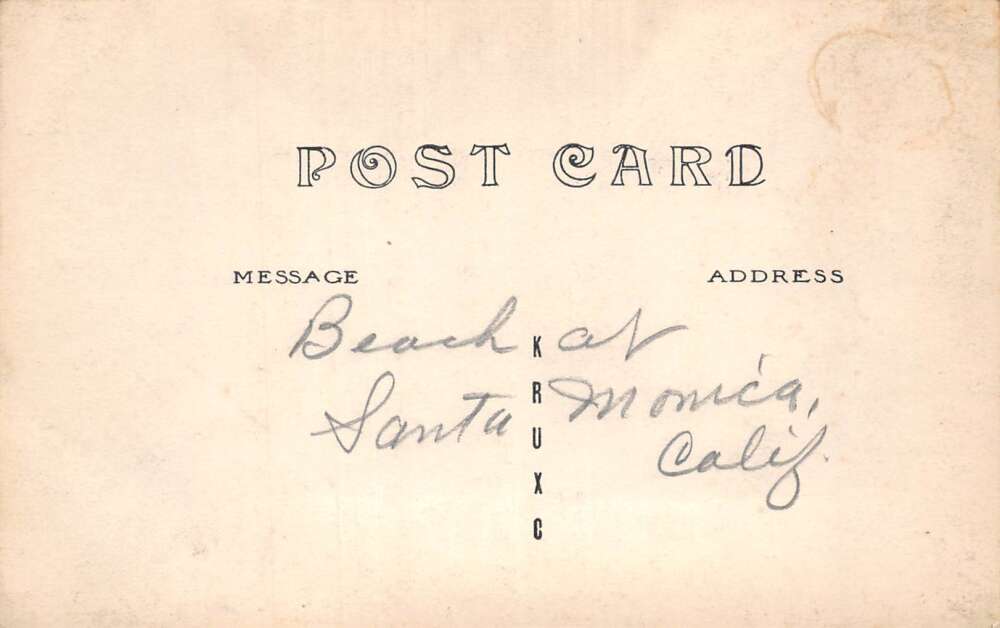 POST CARD
MESSAGE
ADDRESS
Beach at
Santa Monica,
Calif.
KRUXC